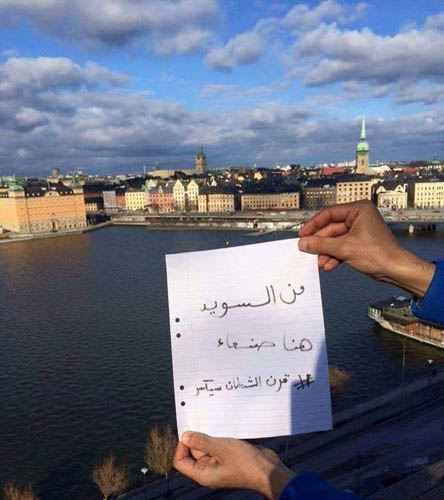 من السويد
هنا صنعاء
# قرن الشيطان سينكسر